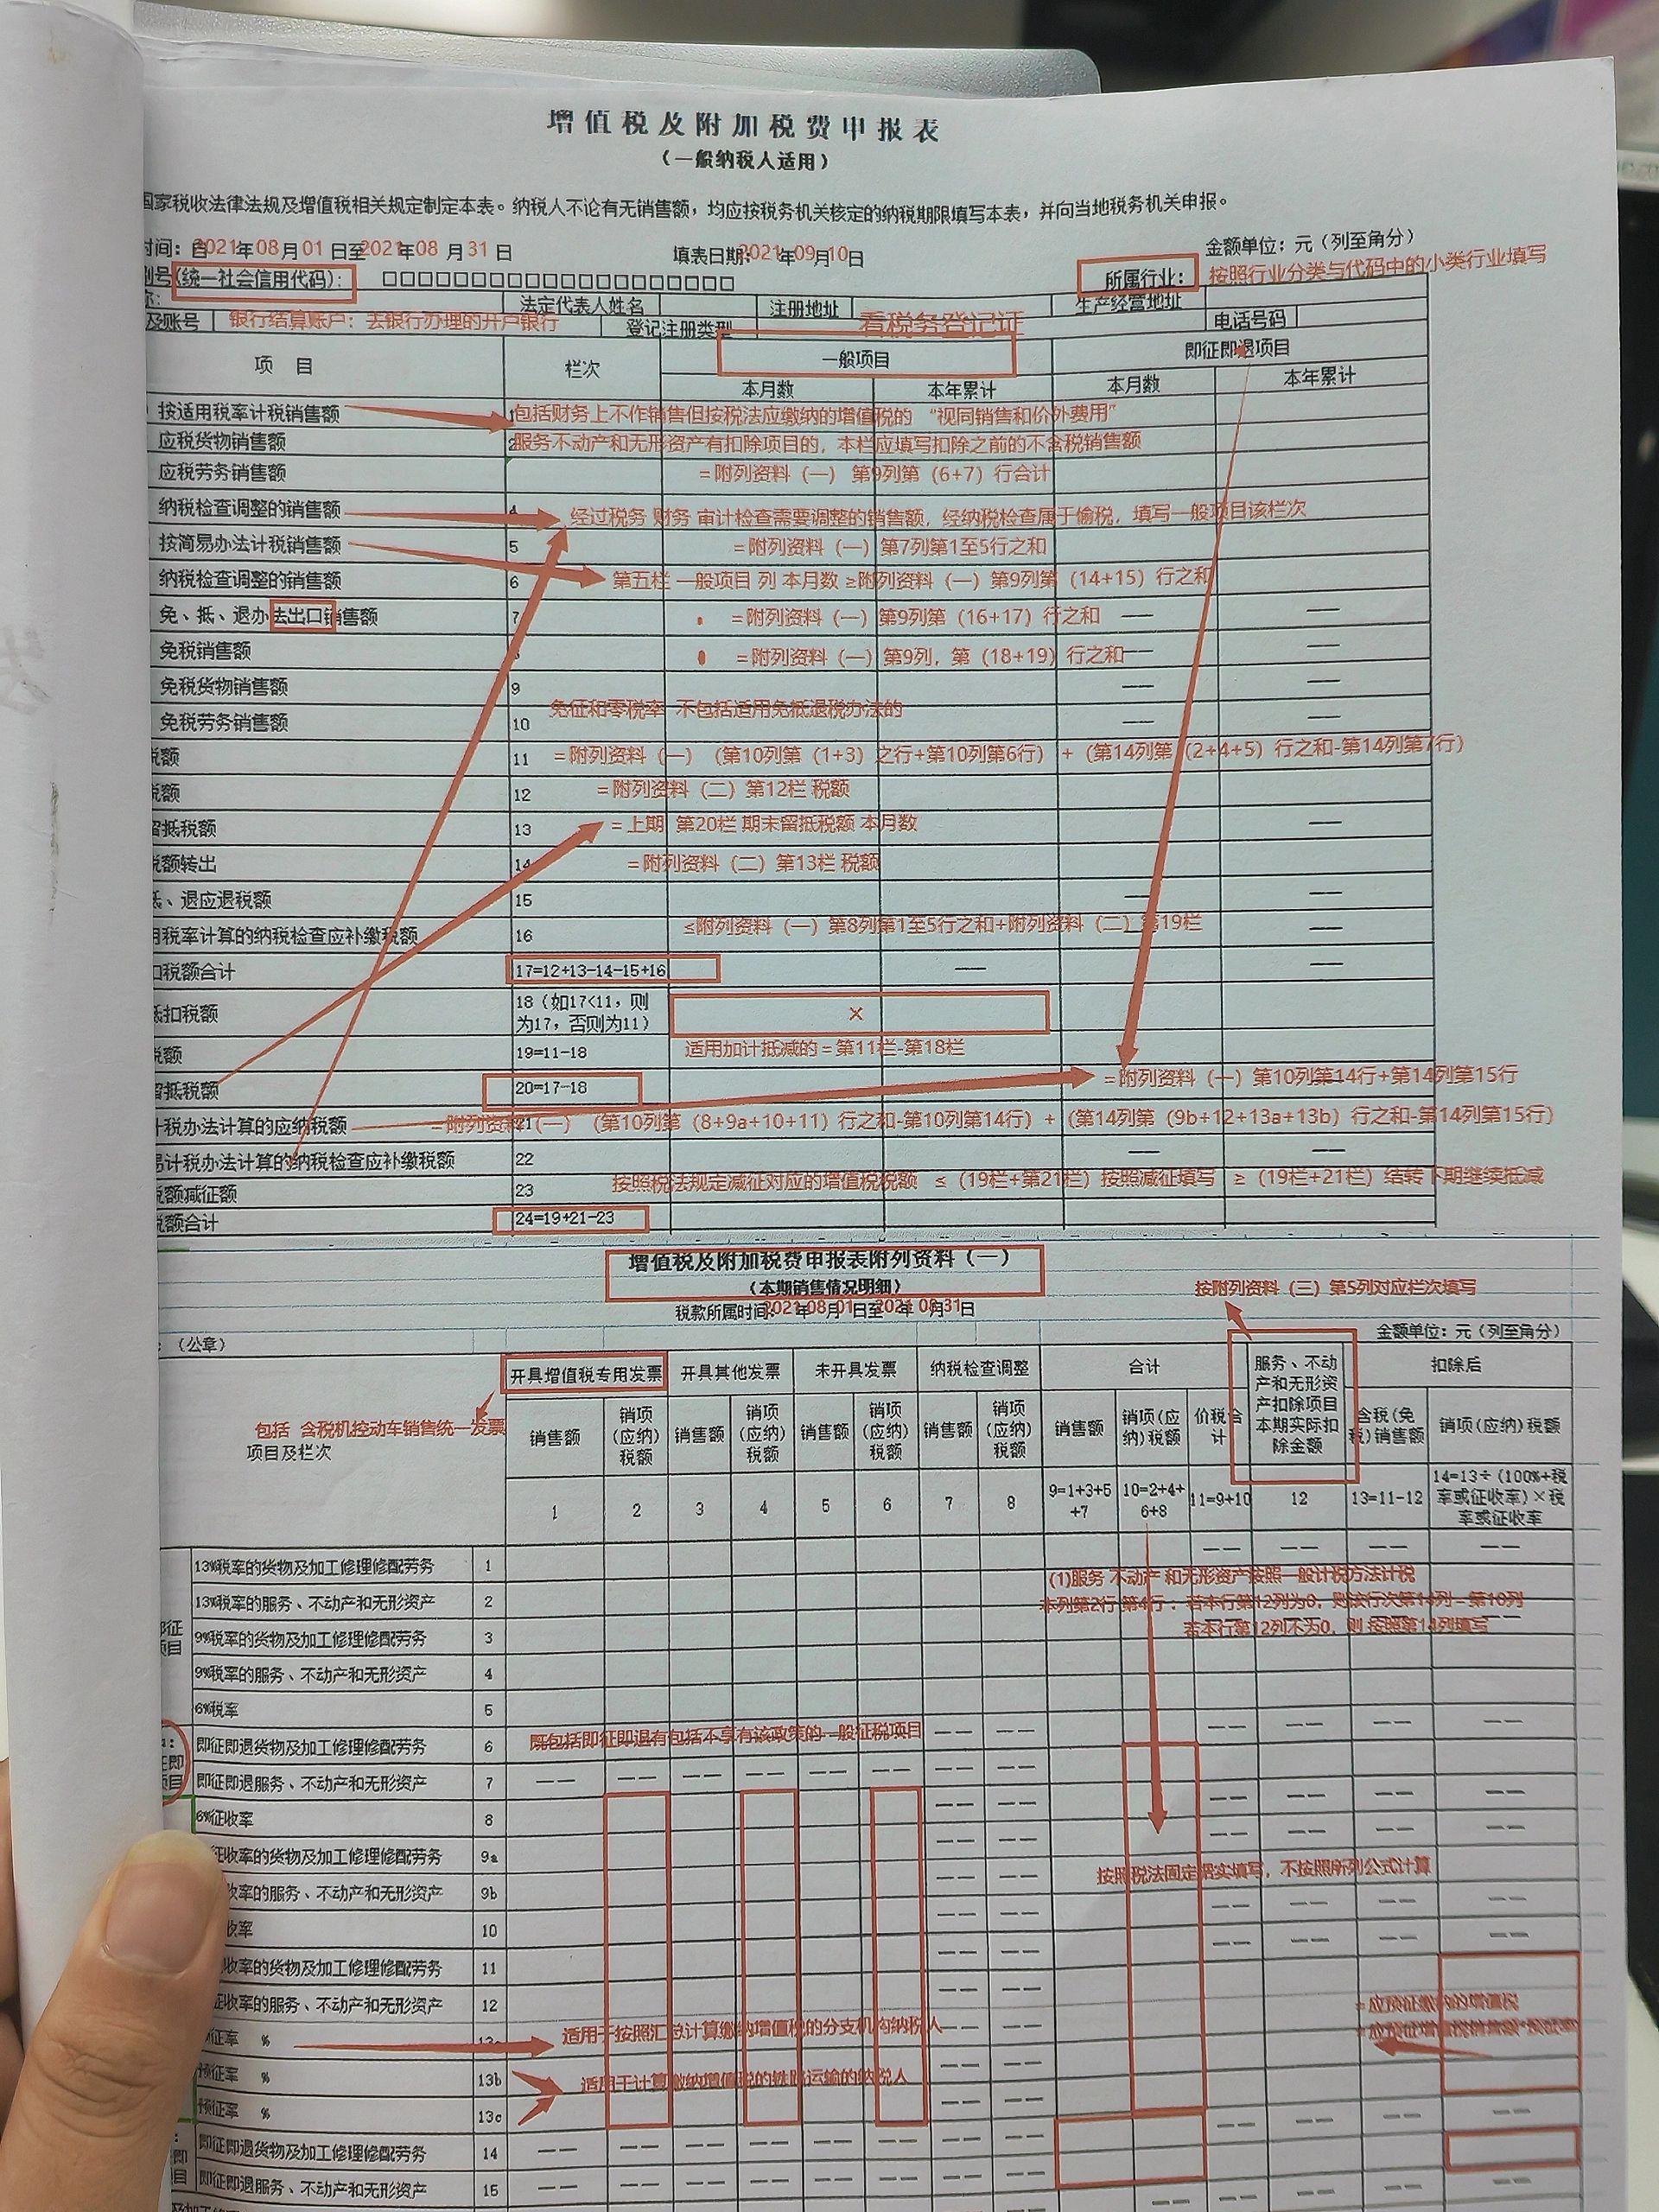 增值税及附加税费申报表
（一般纳税人适用）
国家税收法律法规及增值税相关规定制定本表。纳税人不论有无销售额，均应按税务机关核定的纳税期限填写本表，并向当地税务机关申报。
时间：自2021年08月01日至2021年08月31日 填表日期：2021年09月10日 金额单位：元（列至角分）
别号(统一社会信用代码)： □□□□□□□□□□□□□□□□□□□□ 所属行业： 按照行业分类与代码中的小类行业填写
称： 法定代表人姓名 注册地址 生产经营地址
及账号 银行结算账户：去银行办理的开户银行 登记注册类型 看税务登记证 电话号码
项 目 栏次 一般项目 即征即退项目
本月数 本年累计 本月数 本年累计
按适用税率计税销售额 1 包括财务上不作销售但按税法应缴纳的增值税的 “视同销售和价外费用”
应税货物销售额 2 服务不动产和无形资产有扣除项目的，本栏应填写扣除之前的不含税销售额
应税劳务销售额 =附列资料（一） 第9列第（6+7）行合计
纳税检查调整的销售额 4 经过税务 财务 审计检查需要调整的销售额，经纳税检查属于偷税，填写一般项目该栏次
按简易办法计税销售额 5 =附列资料（一）第7列第1至5行之和
纳税检查调整的销售额 6 第五栏 一般项目 列 本月数 ≥附列资料（一）第9列第（14+15）行之和
免、抵、退办法出口销售额 7 =附列资料（一）第9列第（16+17）行之和 —— ——
免税销售额 =附列资料（一）第9列，第（18+19）行之和 —— ——
免税货物销售额 9 —— ——
免税劳务销售额 10 免征和零税率 不包括适用免抵退税办法的 —— ——
税额 11 =附列资料（一）（第10列第（1+3）之行+第10列第6行）+（第14列第（2+4+5）行之和-第14列第7行）
税额 12 =附列资料（二）第12栏 税额
留抵税额 13 =上期 第20栏 期末留抵税额 本月数 ——
税额转出 14 =附列资料（二）第13栏 税额
抵、退应退税额 15 —— ——
用税率计算的纳税检查应补缴税额 16 ≤附列资料（一）第8列第1至5行之和+附列资料（二）第19栏 —— ——
扣税额合计 17=12+13-14-15+16 —— ——
抵扣税额 18（如17<11，则为17，否则为11） ×
税额 19=11-18 适用加计抵减的=第11栏-第18栏
留抵税额 20=17-18 =附列资料（一）第10列第14行+第14列第15行
计税办法计算的应纳税额 21 =附列资料（一）（第10列第（8+9a+10+11）行之和-第10列第14行）+（第14列第（9b+12+13a+13b）行之和-第14列第15行）
易计税办法计算的纳税检查应补缴税额 22 —— ——
税额减征额 23 按照税法规定减征对应的增值税税额 ≤（19栏+第21栏）按照减征填写 ≥（19栏+21栏）结转下期继续抵减
税额合计 24=19+21-23
增值税及附加税费申报表附列资料（一）
（本期销售情况明细）
按附列资料（三）第5列对应栏次填写
税款所属时间：2021年08月01日至2021年08月31日
：（公章） 金额单位：元（列至角分）
开具增值税专用发票 开具其他发票 未开具发票 纳税检查调整 合计 服务、不动产和无形资产扣除项目本期实际扣除金额 扣除后
包括 含税机控动车销售统一发票
项目及栏次
销售额 销项(应纳)税额 销售额 销项(应纳)税额 销售额 销项(应纳)税额 销售额 销项(应纳)税额 销售额 销项(应纳)税额 价税合计 含税(免税)销售额 销项(应纳)税额
1 2 3 4 5 6 7 8 9=1+3+5+7 10=2+4+6+8 11=9+10 12 13=11-12 14=13÷(100%+税率或征收率)×税率或征收率
13%税率的货物及加工修理修配劳务 1 —— —— —— ——
(1)服务 不动产 和无形资产按照一般计税方法计税
13%税率的服务、不动产和无形资产 2
本列第2行 第4行：若本行第12列为0，则该行次第14列=第10列
若本行第12列不为0，则 按照第14列填写
9%税率的货物及加工修理修配劳务 3
9%税率的服务、不动产和无形资产 4
6%税率 5
即征即退货物及加工修理修配劳务 6 既包括即征即退有包括不享有该政策的一般征税项目 —— —— —— —— —— ——
即征即退服务、不动产和无形资产 7 —— —— —— —— —— —— —— ——
6%征收率 8 —— —— —— —— —— ——
征收率的货物及加工修理修配劳务 9a —— —— —— —— —— ——
按照税法固定据实填写，不按照所列公式计算
收率的服务、不动产和无形资产 9b —— ——
收率 10 —— —— —— —— —— ——
收率的货物及加工修理修配劳务 11 —— —— —— —— ——
征收率的服务、不动产和无形资产 12 —— ——
=应预征缴纳的增值税
预征率 % 13a 适用于按照汇总计算缴纳增值税的分支机构纳税人
预征率 % 13b 适用于计算缴纳增值税的铁路运输的纳税人
预征率 % 13c —— ——
即征即退货物及加工修理修配劳务 14 —— —— —— —— —— —— —— ——
即征即退服务、不动产和无形资产 15 —— —— —— —— —— —— —— ——